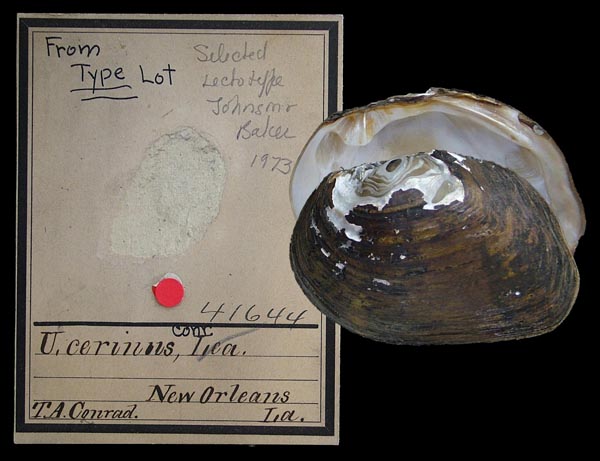 From
Type Lot
Selected
Lectotype
Johnson
Baker
1973
41644
conr
U. cerinus, Lea.
New Orleans
T.A. Conrad. La.